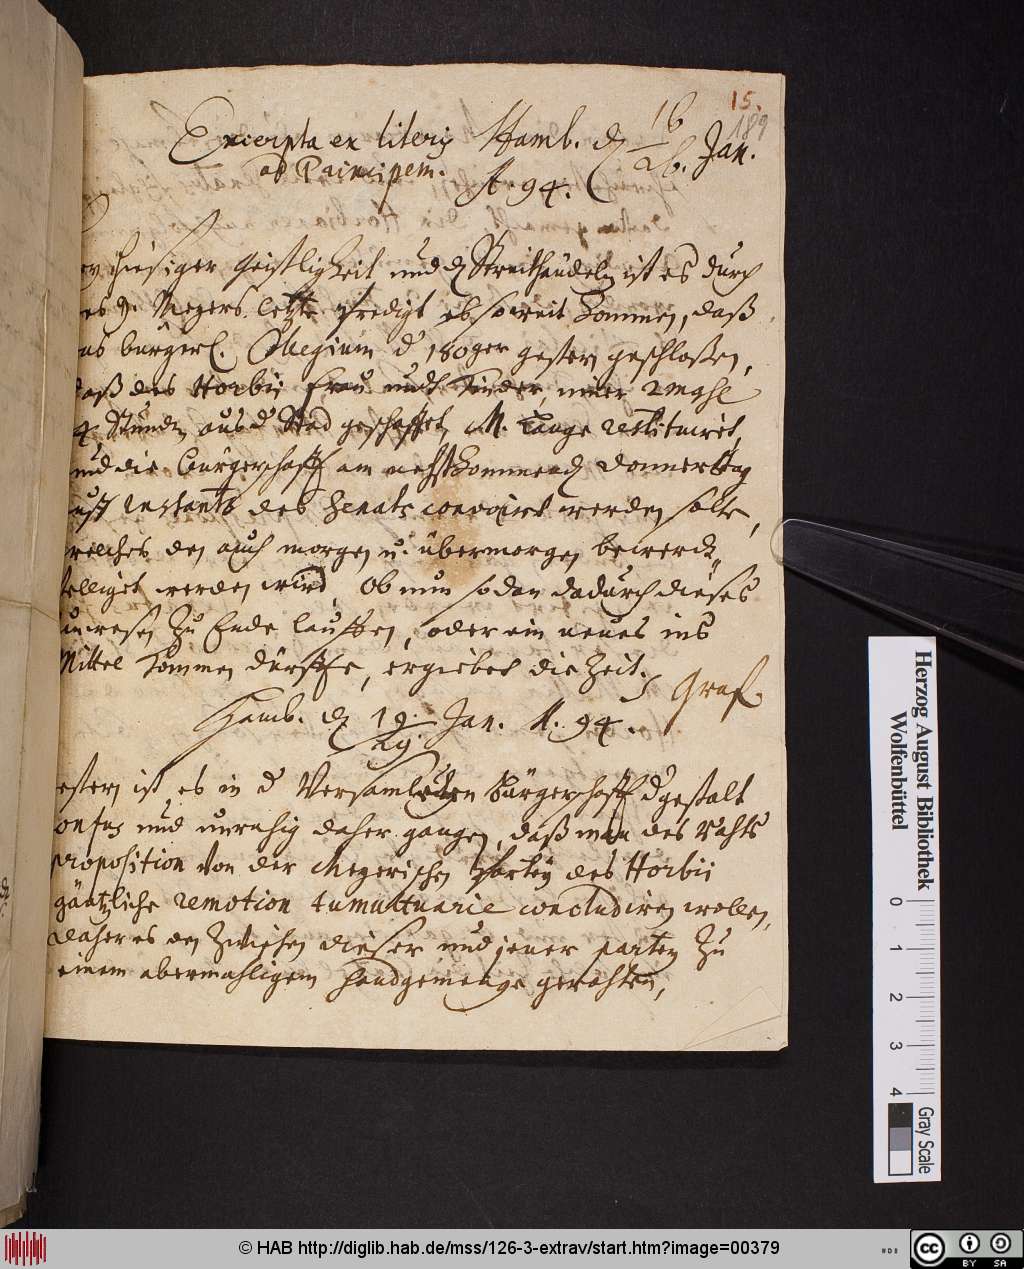 15.
189
Excerpta ex literis Hamb. d 16/26. Jan.
ad Principem. A. 94.
hiesiger Geistligkeit und d Streithändeln ist es durch
H. Meyers letzte Predigt ebsoweit kommen, daß
bürgerl. Collegium d 180ger gestern geschloßen,
daß des Horbii Frau und Kinder, inner
4 Stunden aus d Stad geschaffet, M. Lange restituiret,
und die bürgerschafft am nehstkommend Donnerstag
uff Instants des Senats convocirt werden solte,
welches den auch morgen u. übermorgen bewerck-
stelliget werden wird. Ob nun sodan dadurch dieses
unwesen zu Ende lauffen, oder ein neues ins
Mittel kommen dürffte, ergiebet die Zeit.
Graf.
Hamb. d 19/29. Jan. A. 94.
estern ist es in d Versamleten Bürgerschafft dgestalt
onfus und unruhig daher gangen, daß man des Rahts
proposition von der Meyerischen Partey des Horbii
gäntzliche remotion tumultuarie concludiren wollen,
Daher es den zwischen dieser und jener partey zu
einem abermahligem Handgemenge gerahten,
Herzog August Bibliothek
Wolfenbüttel
0 1 2 3 4
Gray Scale
© HAB http://diglib.hab.de/mss/126-3-extrav/start.htm?image=00379
cc BY SA